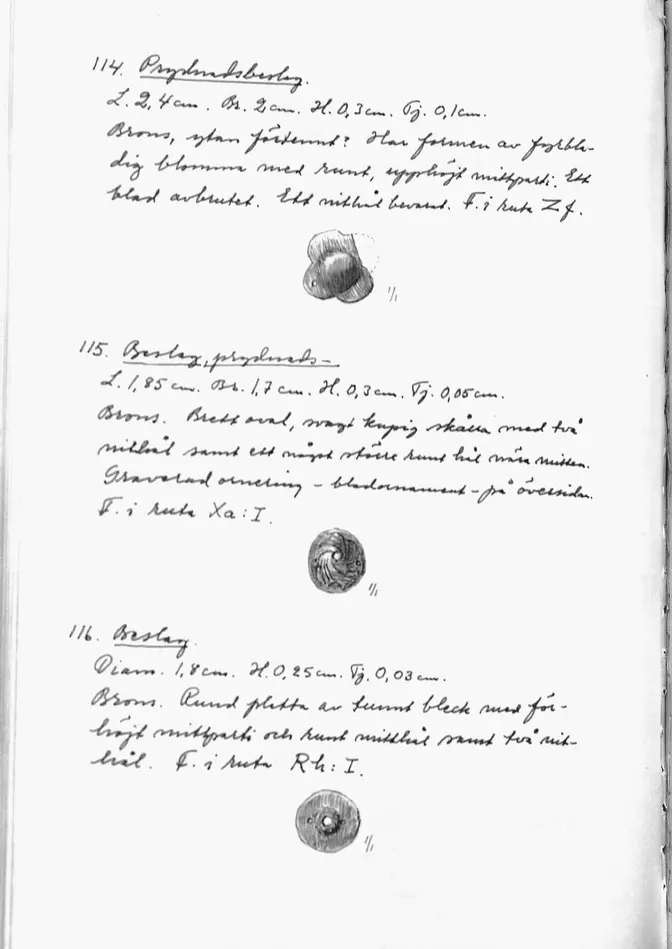 114. Prydnadsbeslag.
L. 2,4 cm. Br. 2 cm. H. 0,3 cm. Tj. 0,1 cm.
Brons, ytan förtennt? Har formen av fyrbla-
dig blomma med runt, upphöjt mittparti. Ett
blad avbrutet. Ett nithål bevarat. F. i ruta Z f.
1/1
115. Beslag, prydnads-
L. 1,85 cm. Br. 1,7 cm. H. 0,3 cm. Tj. 0,05 cm.
Brons. Brett oval, svagt kupig skålla med två
nithål samt ett något större runt hål nära mitten.
Graverad ornering - bladornament - på översidan.
F. i ruta Xa: I.
1/1
116. Beslag.
Diam. 1,8 cm. H. 0,25 cm. Tj. 0,03 cm.
Brons. Rund platta av tunnt bleck med för-
höjt mittparti och runt mitthål samt två nit-
hål. F. i ruta Rh: I.
1/1